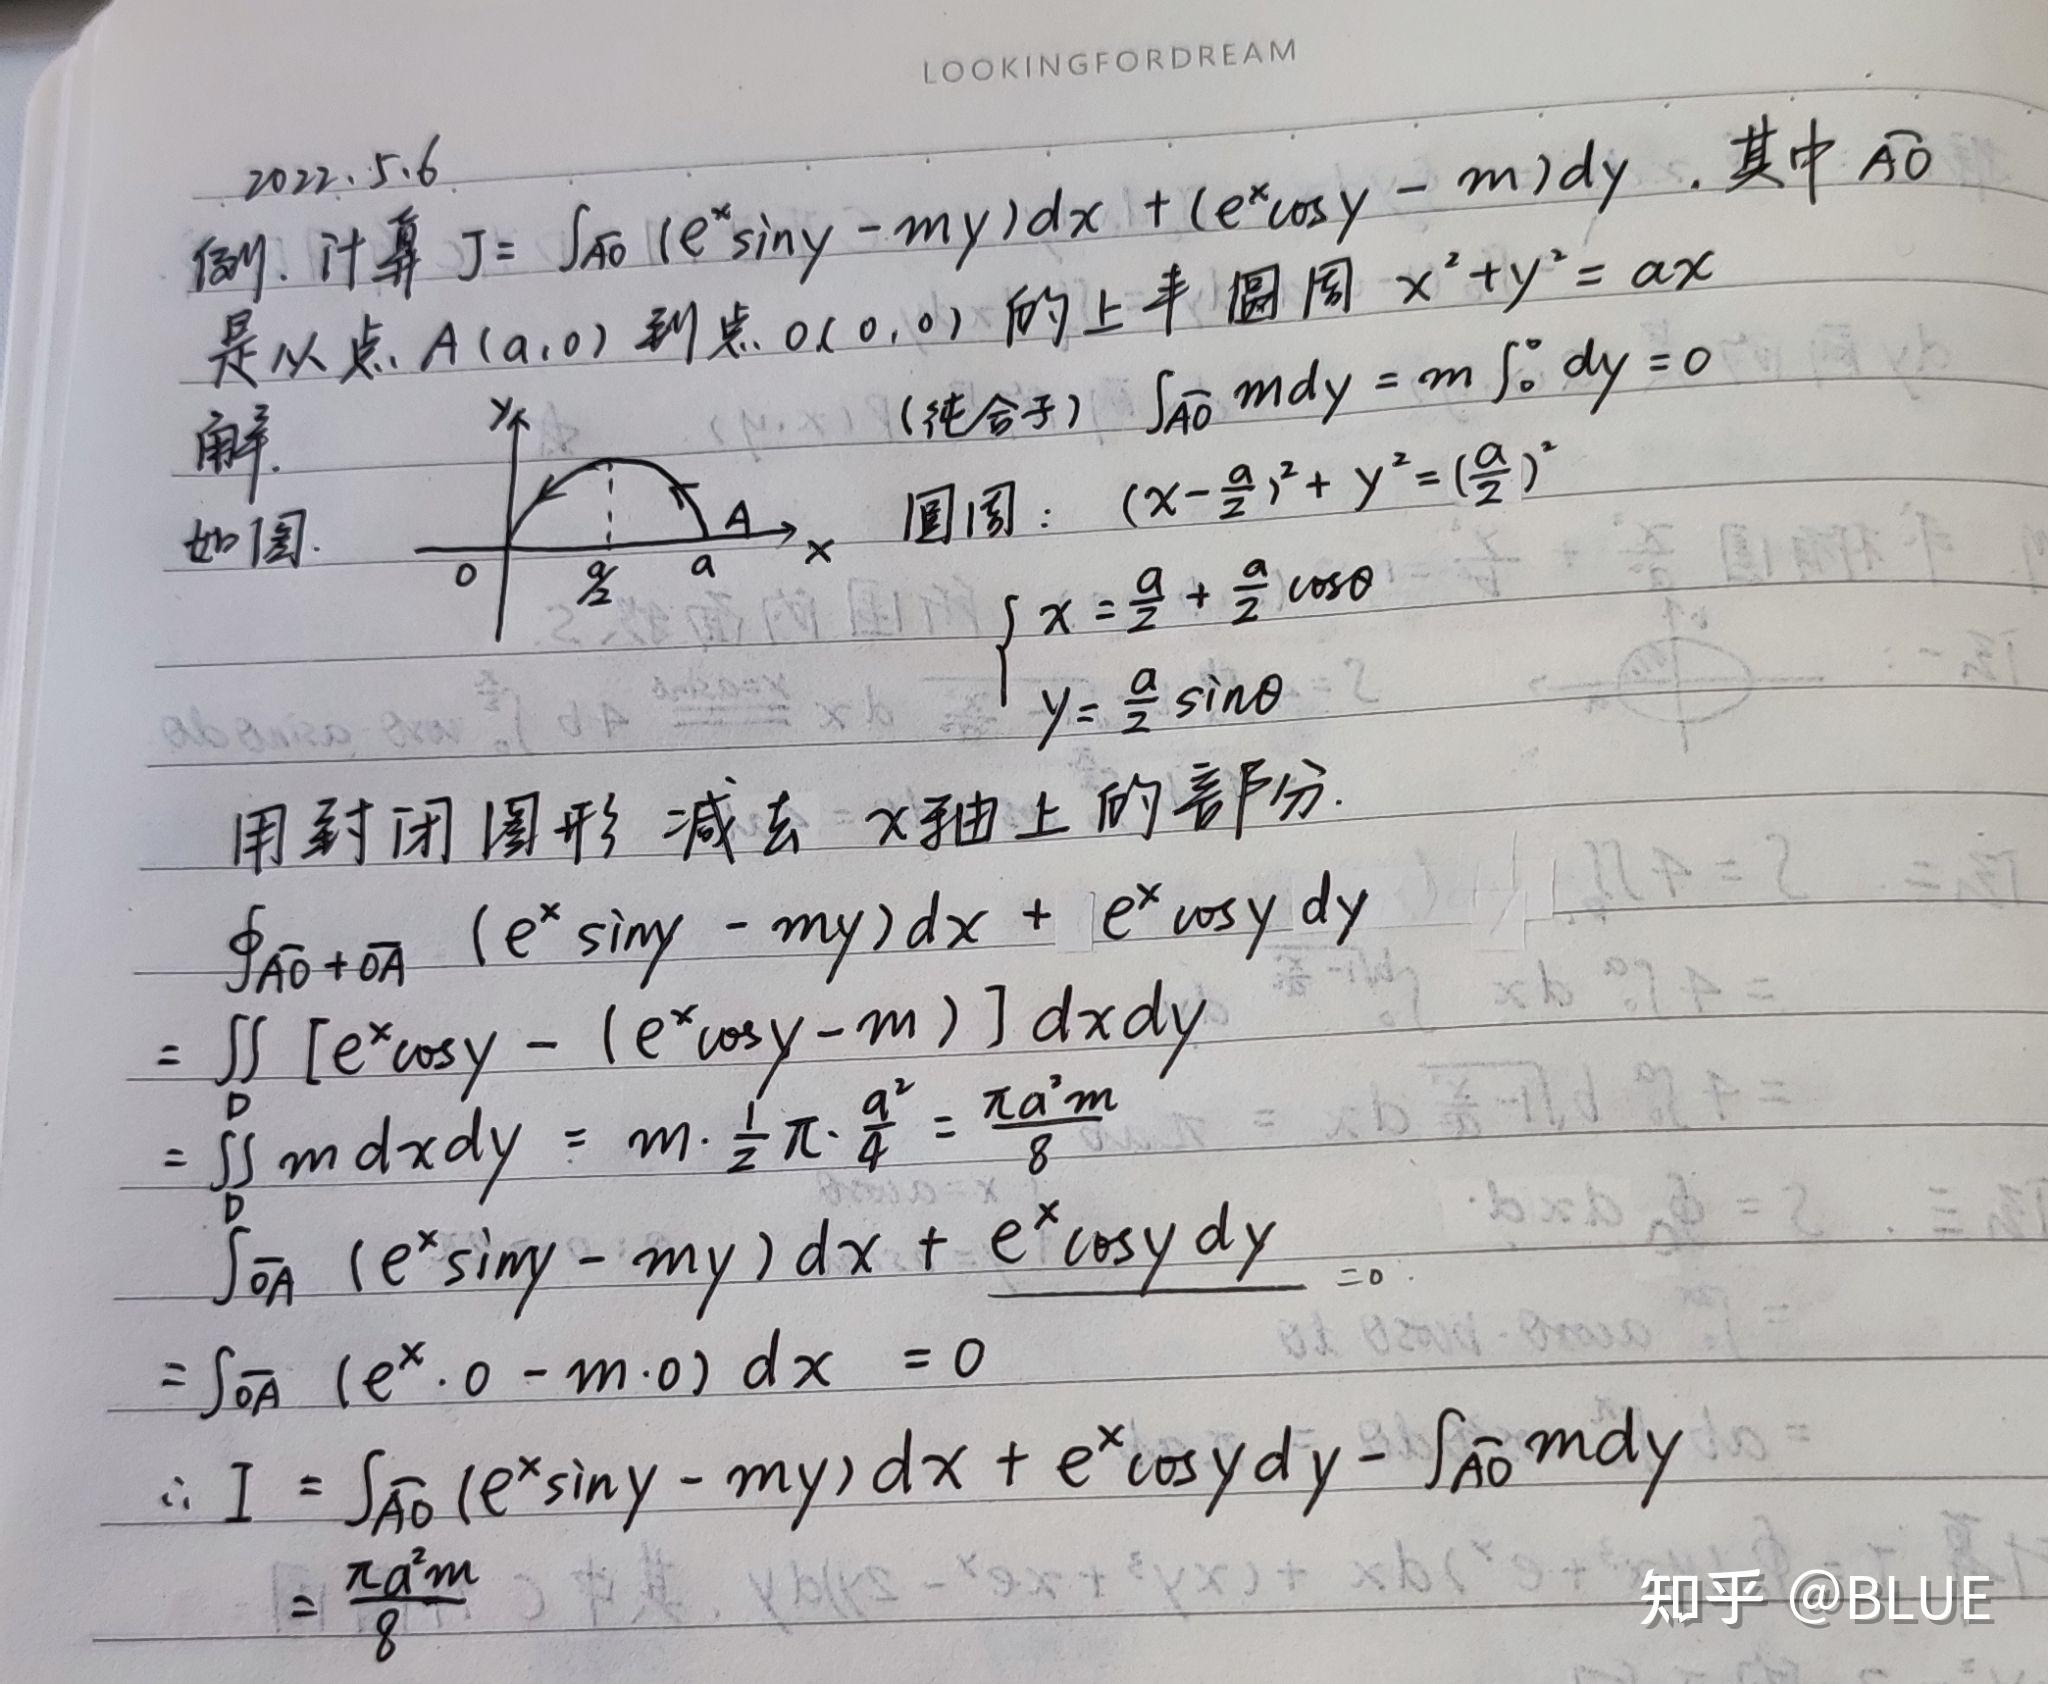 LOOKINGFORDREAM
2022.5.6
例. 计算 J = ∫A͡O (eˣsiny - my)dx + (eˣcosy - m)dy . 其中 A͡O
是从点 A(a,0) 到点 O(0,0) 的上半圆周 x²+y²=ax
解.
(纯合子) ∫A͡O mdy = m∫₀⁰ dy = 0
如图.
y
A
O
a/2
a
x
圆周: (x-a/2)² + y² = (a/2)²
{ x = a/2 + a/2 cosθ
y = a/2 sinθ
用封闭图形 减去 x轴上的部分.
∮A͡O+O̅A̅ (eˣsiny - my)dx + eˣcosy dy
= ∬D [eˣcosy - (eˣcosy-m)] dxdy
= ∬D m dxdy = m·1/2 π·a²/4 = πa²m/8
∫O̅A̅ (eˣsiny - my)dx + eˣcosy dy =0.
= ∫O̅A̅ (eˣ·0 - m·0) dx = 0
∴ I = ∫A͡O (eˣsiny - my)dx + eˣcosydy - ∫A͡O mdy
= πa²m/8
知乎 @BLUE